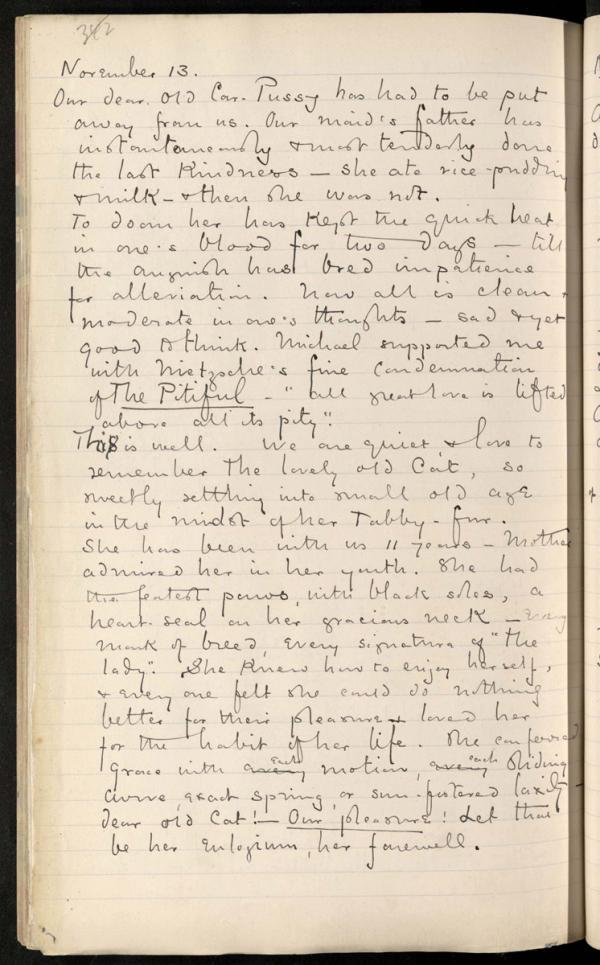 342
November 13.
Our dear old Car-Pussy has had to be put
away from us. Our maid's father has
instantaneously & most tenderly done
the last Kindness — she ate rice-pudding
& milk — & then she was not.
To doom her has Kept the quick heat
in one's blood for two days — till
the anguish has bred impatience
for alleviation. Now all is clean &
moderate in one's thoughts — sad & yet
good to think. Michael supported me
with Nietzsche's fine condemnation
of The Pitiful — "all great love is lifted
above all its pity".
This is well. We are quiet, & love to
remember the lovely old Cat, so
sweetly settling into small old age
in the midst of her Tabby-fur.
She has been with us 11 years — Mother
admired her in her youth. She had
the featest paws, with black soles, a
heart-seal on her gracious neck — every
mark of breed, every signature of "the
lady". She Knew how to enjoy herself,
& every one felt she could do nothing
better for their pleasure & loved her
for the habit of her life. She conferred
grace with every each motion, every each sliding
curve, exact spring, or sun-fostered laxity —
dear old Cat! — Our pleasure! Let that
be her Eulogium, her farewell.